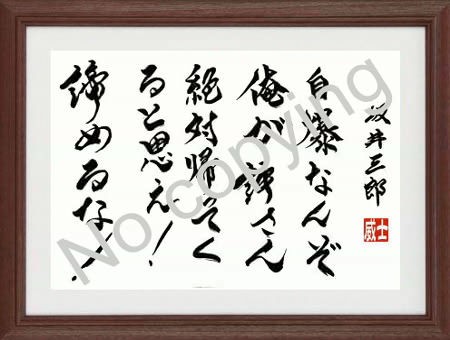 坂井三郎
自爆なんぞ
俺が許さん
絶対帰ってく
ると思え!
諦めるな!
威士
No copying